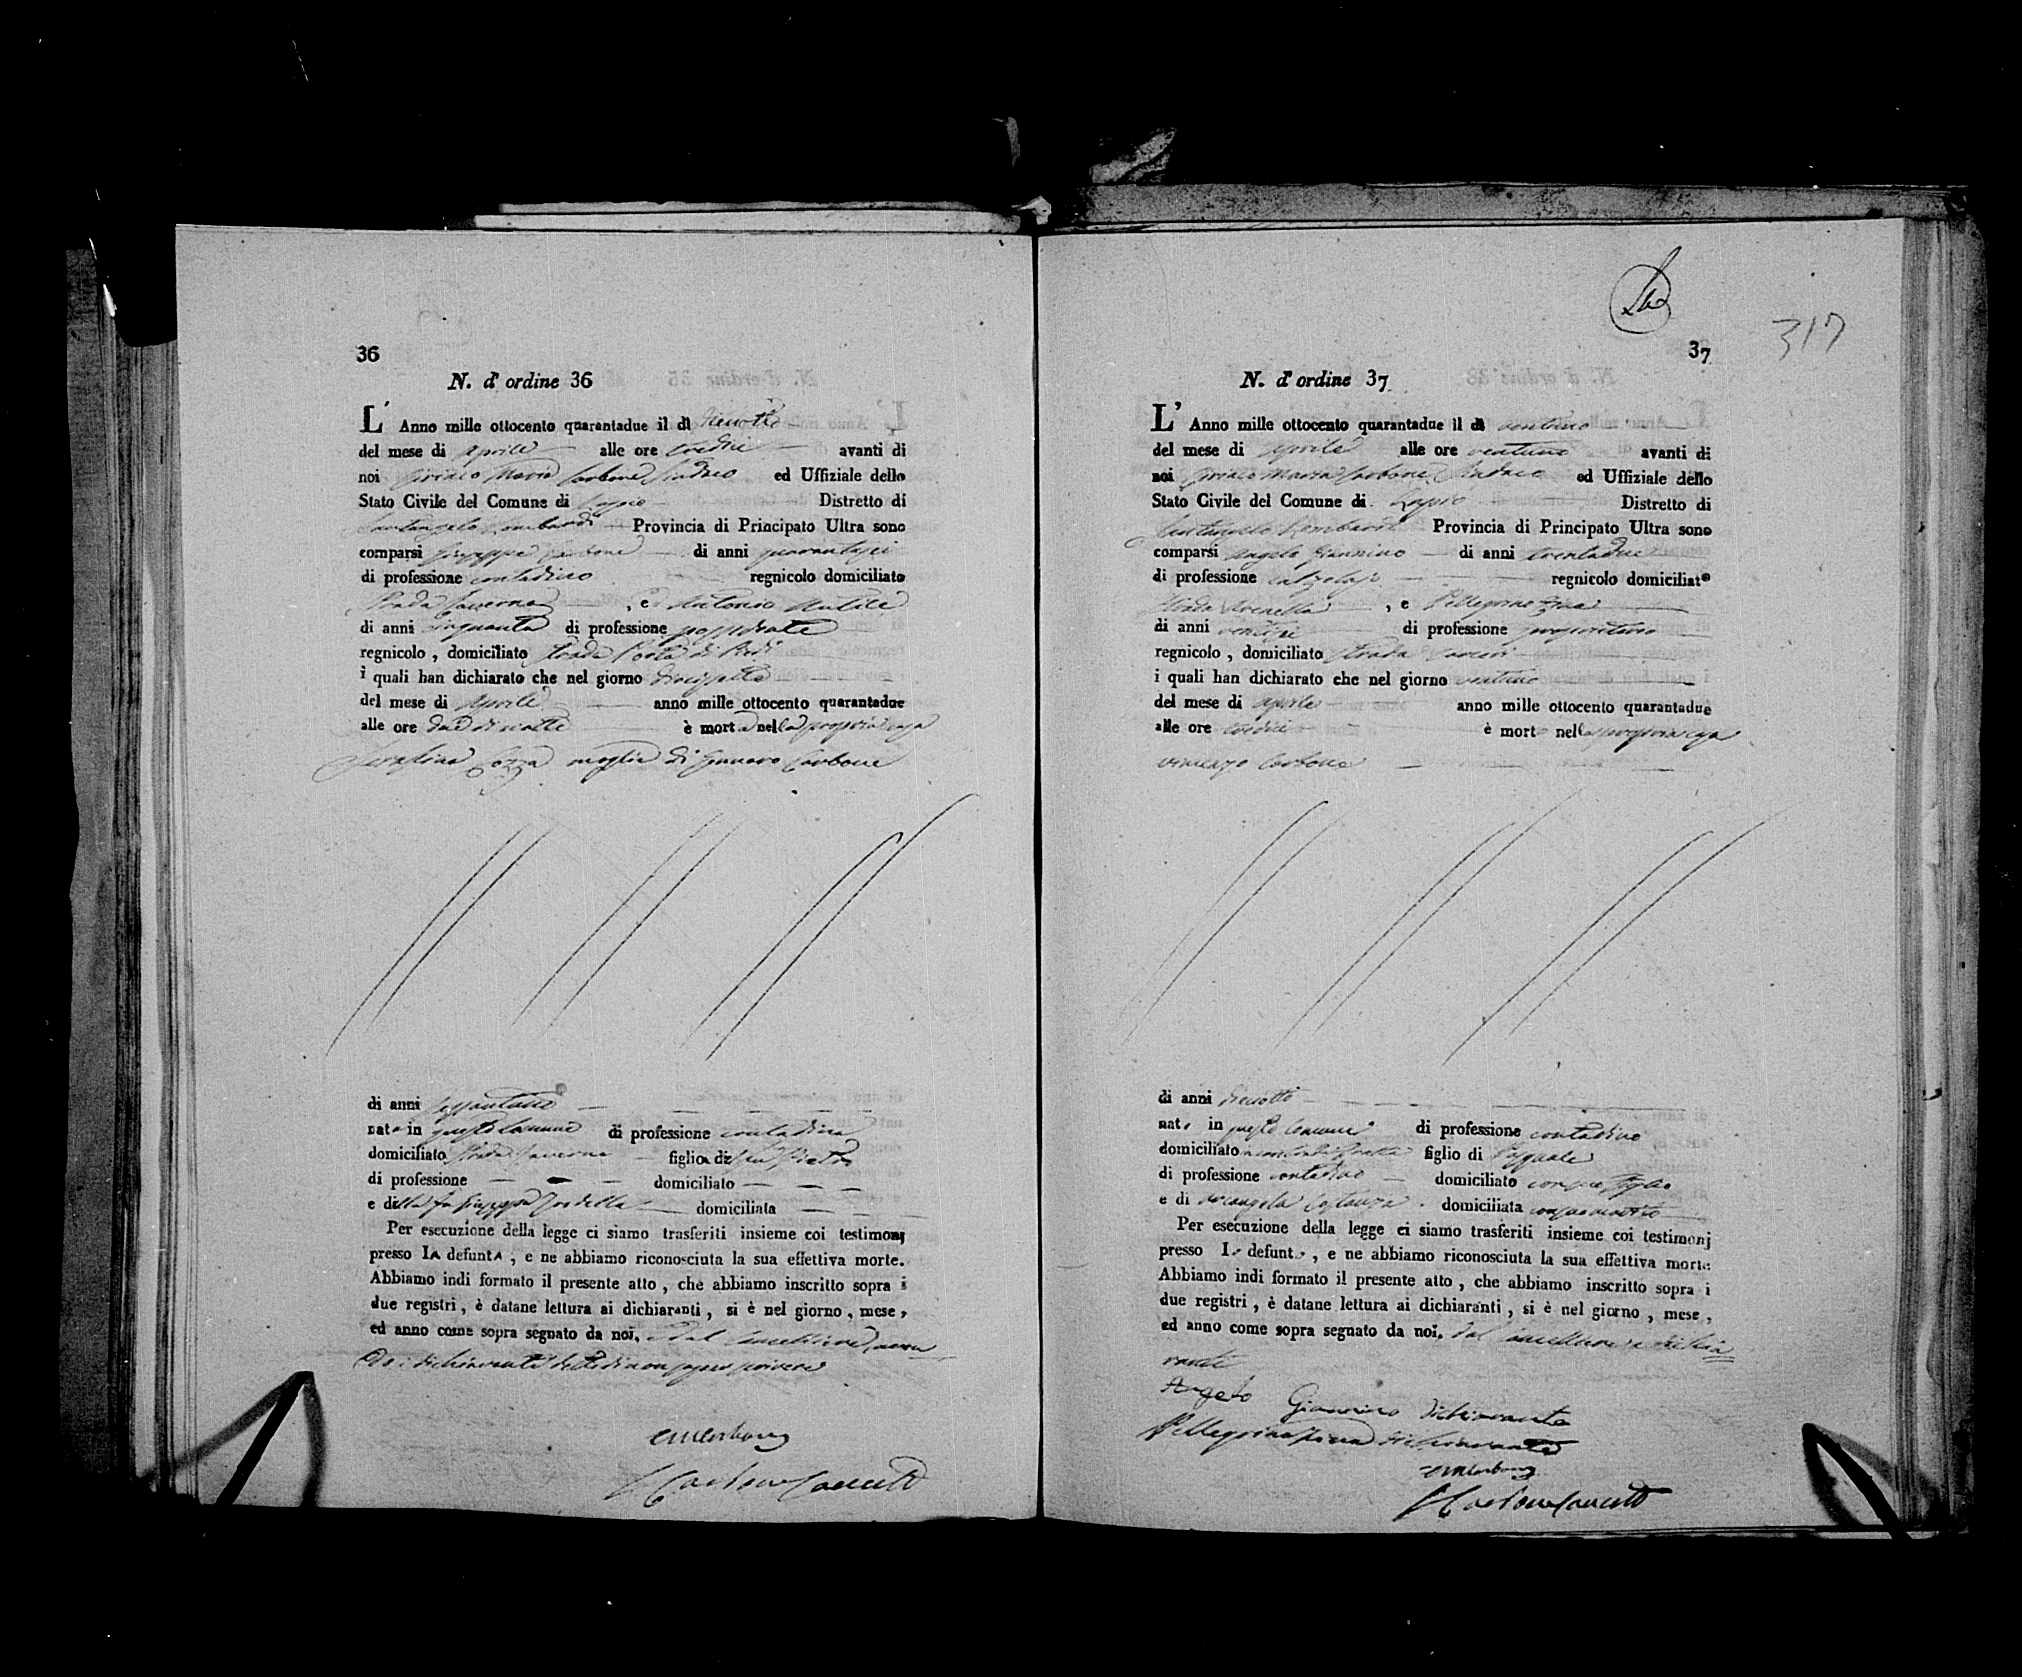 36
N. d'ordine 36
L' Anno mille ottocento quarantadue il dì dieciotto
del mese di Aprile alle ore tredici avanti di
noi Ciriaco Maria Carbone Sindaco ed Uffiziale dello
Stato Civile del Comune di Lapio Distretto di
Santangelo Lombardi Provincia di Principato Ultra sono
comparsi Giuseppe Carbone di anni quarantasei
di professione contadino regnicolo domiciliato
Strada Taverna, e Antonio
di anni cinquanta di professione
regnicolo, domiciliato strada Porta di
i quali han dichiarato che nel giorno diecissette
del mese di Aprile anno mille ottocento quarantadue
alle ore due di notte è morta nella propria casa
Serafina moglie di Gennaro Carbone
di anni
nata in questo Comune di professione contadina
domiciliato Strada Taverna figlia di fu Pietro
di professione domiciliato
e della fu Giuseppa domiciliata
Per esecuzione della legge ci siamo trasferiti insieme coi testimonj
presso la defunta, e ne abbiamo riconosciuta la sua effettiva morte.
Abbiamo indi formato il presente atto, che abbiamo inscritto sopra i
due registri, è datane lettura ai dichiaranti, si è nel giorno, mese,
ed anno come sopra segnato da noi, e dal Cancelliere, aven
do i dichiaranti detto di non saper scrivere
CMCarbone
317
37
N. d'ordine 37
L' Anno mille ottocento quarantadue il dì ventuno
del mese di Aprile alle ore ventuno avanti di
noi Ciriaco Maria Carbone Sindaco ed Uffiziale dello
Stato Civile del Comune di Lapio Distretto di
Santangelo Lombardi Provincia di Principato Ultra sono
comparsi Angelo Giannino di anni trentadue
di professione calzolajo regnicolo domiciliato
strada, e Pellegrino
di anni di professione proprietario
regnicolo, domiciliato strada
i quali han dichiarato che nel giorno ventuno
del mese di Aprile anno mille ottocento quarantadue
alle ore tredici è morto nella propria casa
Vincenzo Carbone
di anni dieciotto
nato in questo Comune di professione contadino
domiciliato figlio di Pasquale
di professione contadino domiciliato con suo figlio
e di Arcangela Costanza domiciliata con suo marito
Per esecuzione della legge ci siamo trasferiti insieme coi testimonj
presso l defunto, e ne abbiamo riconosciuta la sua effettiva morte
Abbiamo indi formato il presente atto, che abbiamo inscritto sopra i
due registri, è datane lettura ai dichiaranti, si è nel giorno, mese,
ed anno come sopra segnato da noi, dal Cancelliere e dichia
ranti
Angelo Giannino dichiarante
Pellegrino dichiarante
CMCarbone